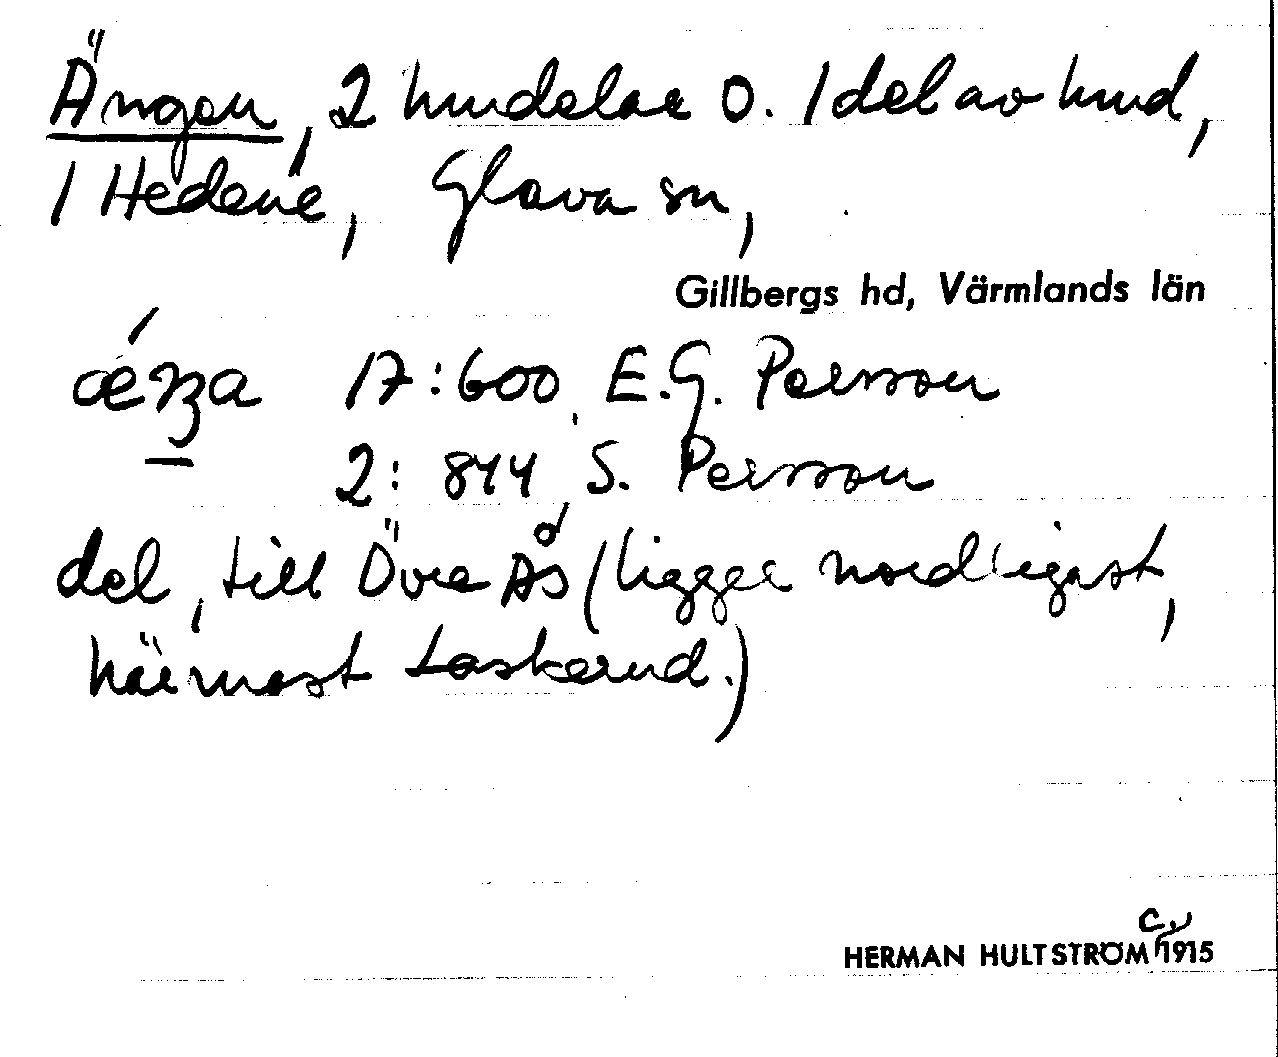 Ängen, 2 hmdelar o. 1 del av hmd,
1 Hedane, Glava sn,
Gillbergs hd, Värmlands län
æ´ŋa 17:600, E.G. Persson
2: 844, S. Persson
del, till Övre Ås (ligger nordligast,
närmast Laskerud.)
c.
HERMAN HULTSTRÖM 1915